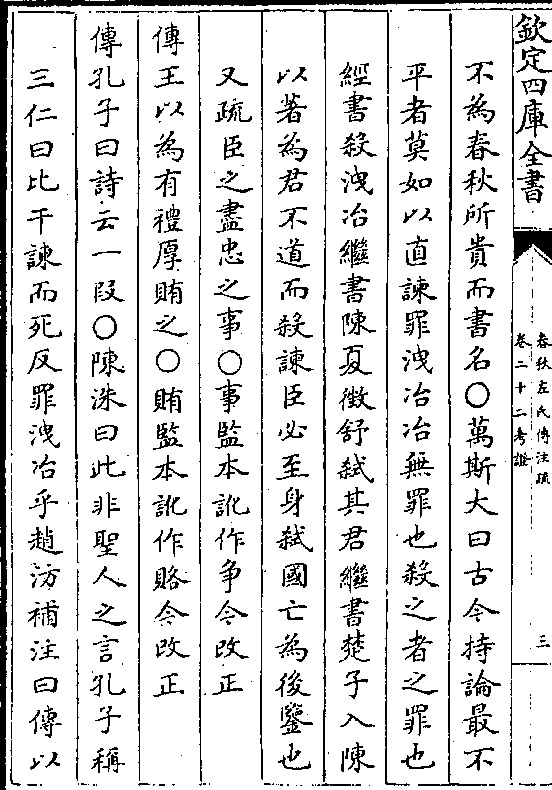 欽定四庫全書
春秋左氏傳注疏
卷二十二考證
三
不為春秋所貴而書名○萬斯大曰古今持論最不
平者莫如以直諫罪洩冶冶無罪也殺之者之罪也
經書殺洩冶繼書陳夏徵舒弑其君繼書楚子入陳
以著為君不道而殺諫臣必至身弑國亡為後鑒也
又疏臣之盡忠之事○事監本訛作争今改正
傳王以為有禮厚賄之○賄監本訛作賂今改正
傳孔子曰詩云一段○陳洙曰此非聖人之言孔子稱
三仁曰比干諫而死反罪洩冶乎趙汸補注曰傳以